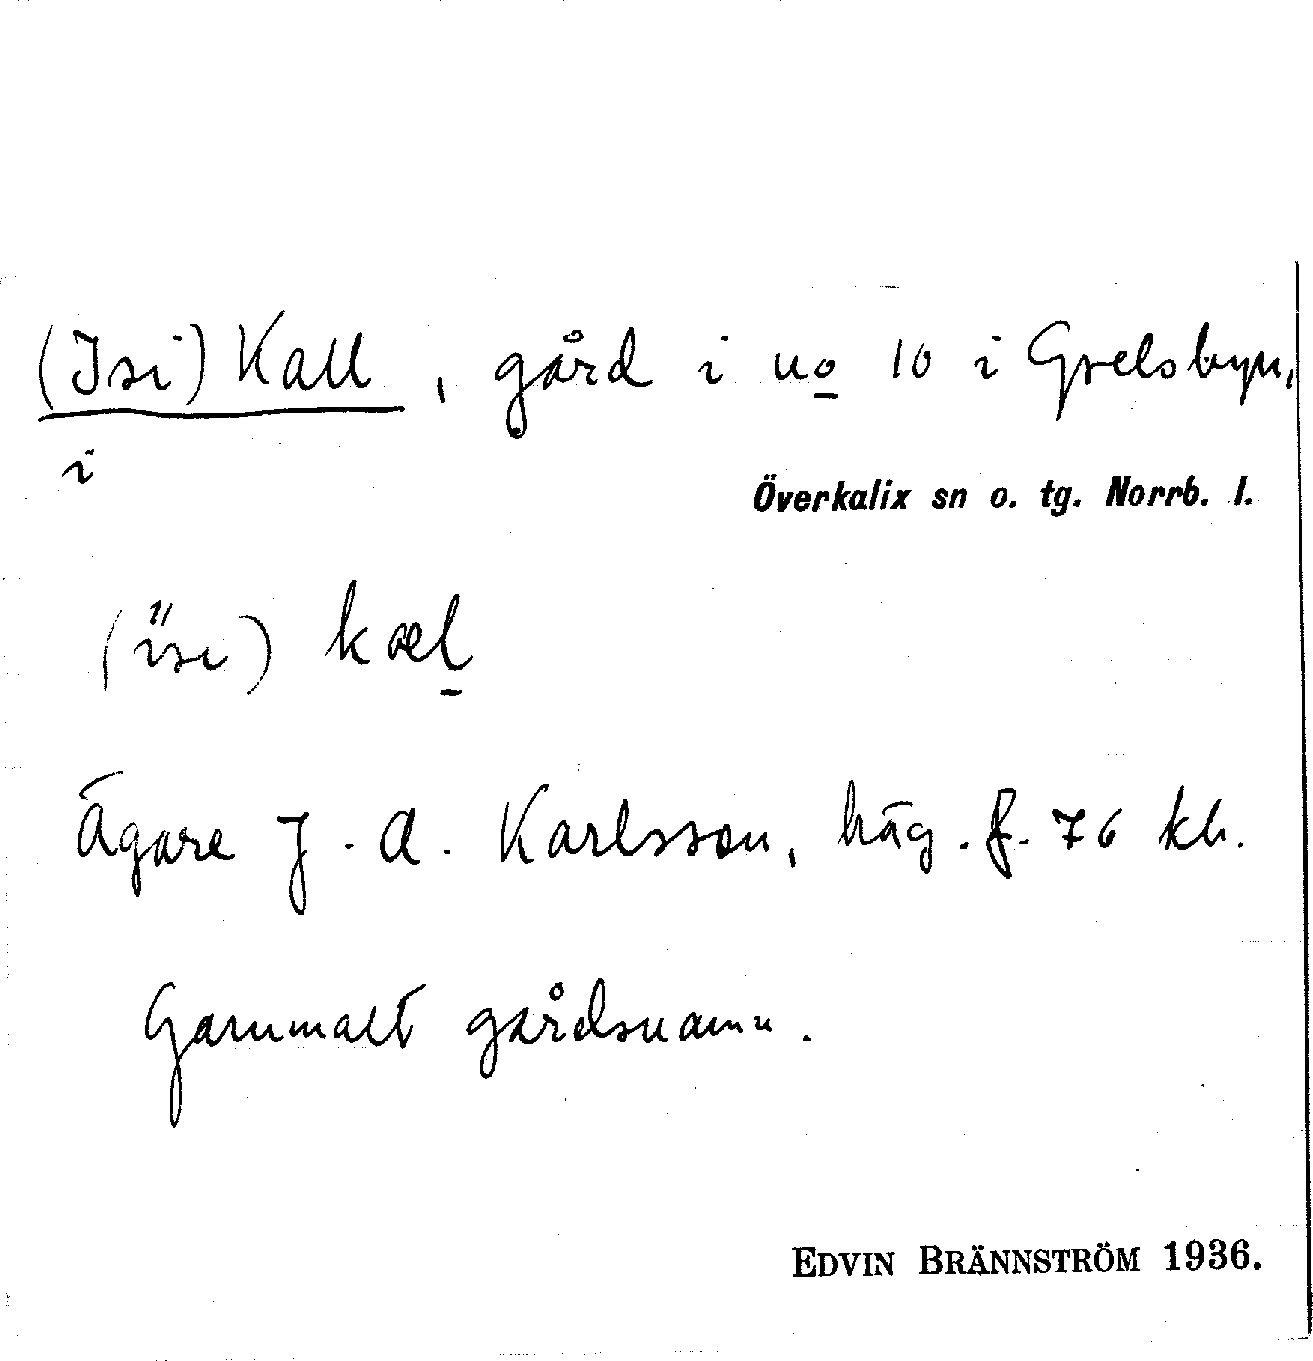 (Isi) Kall, gård i no 10 i Grelsbyn,
i
Överkalix sn o. tg. Norrb. l.
(ïsi) kæl
Ägare J. A. Karlsson, häg. f. 76 kh.
Gammalt gårdsnamn.
EDVIN BRÄNNSTRÖM 1936.